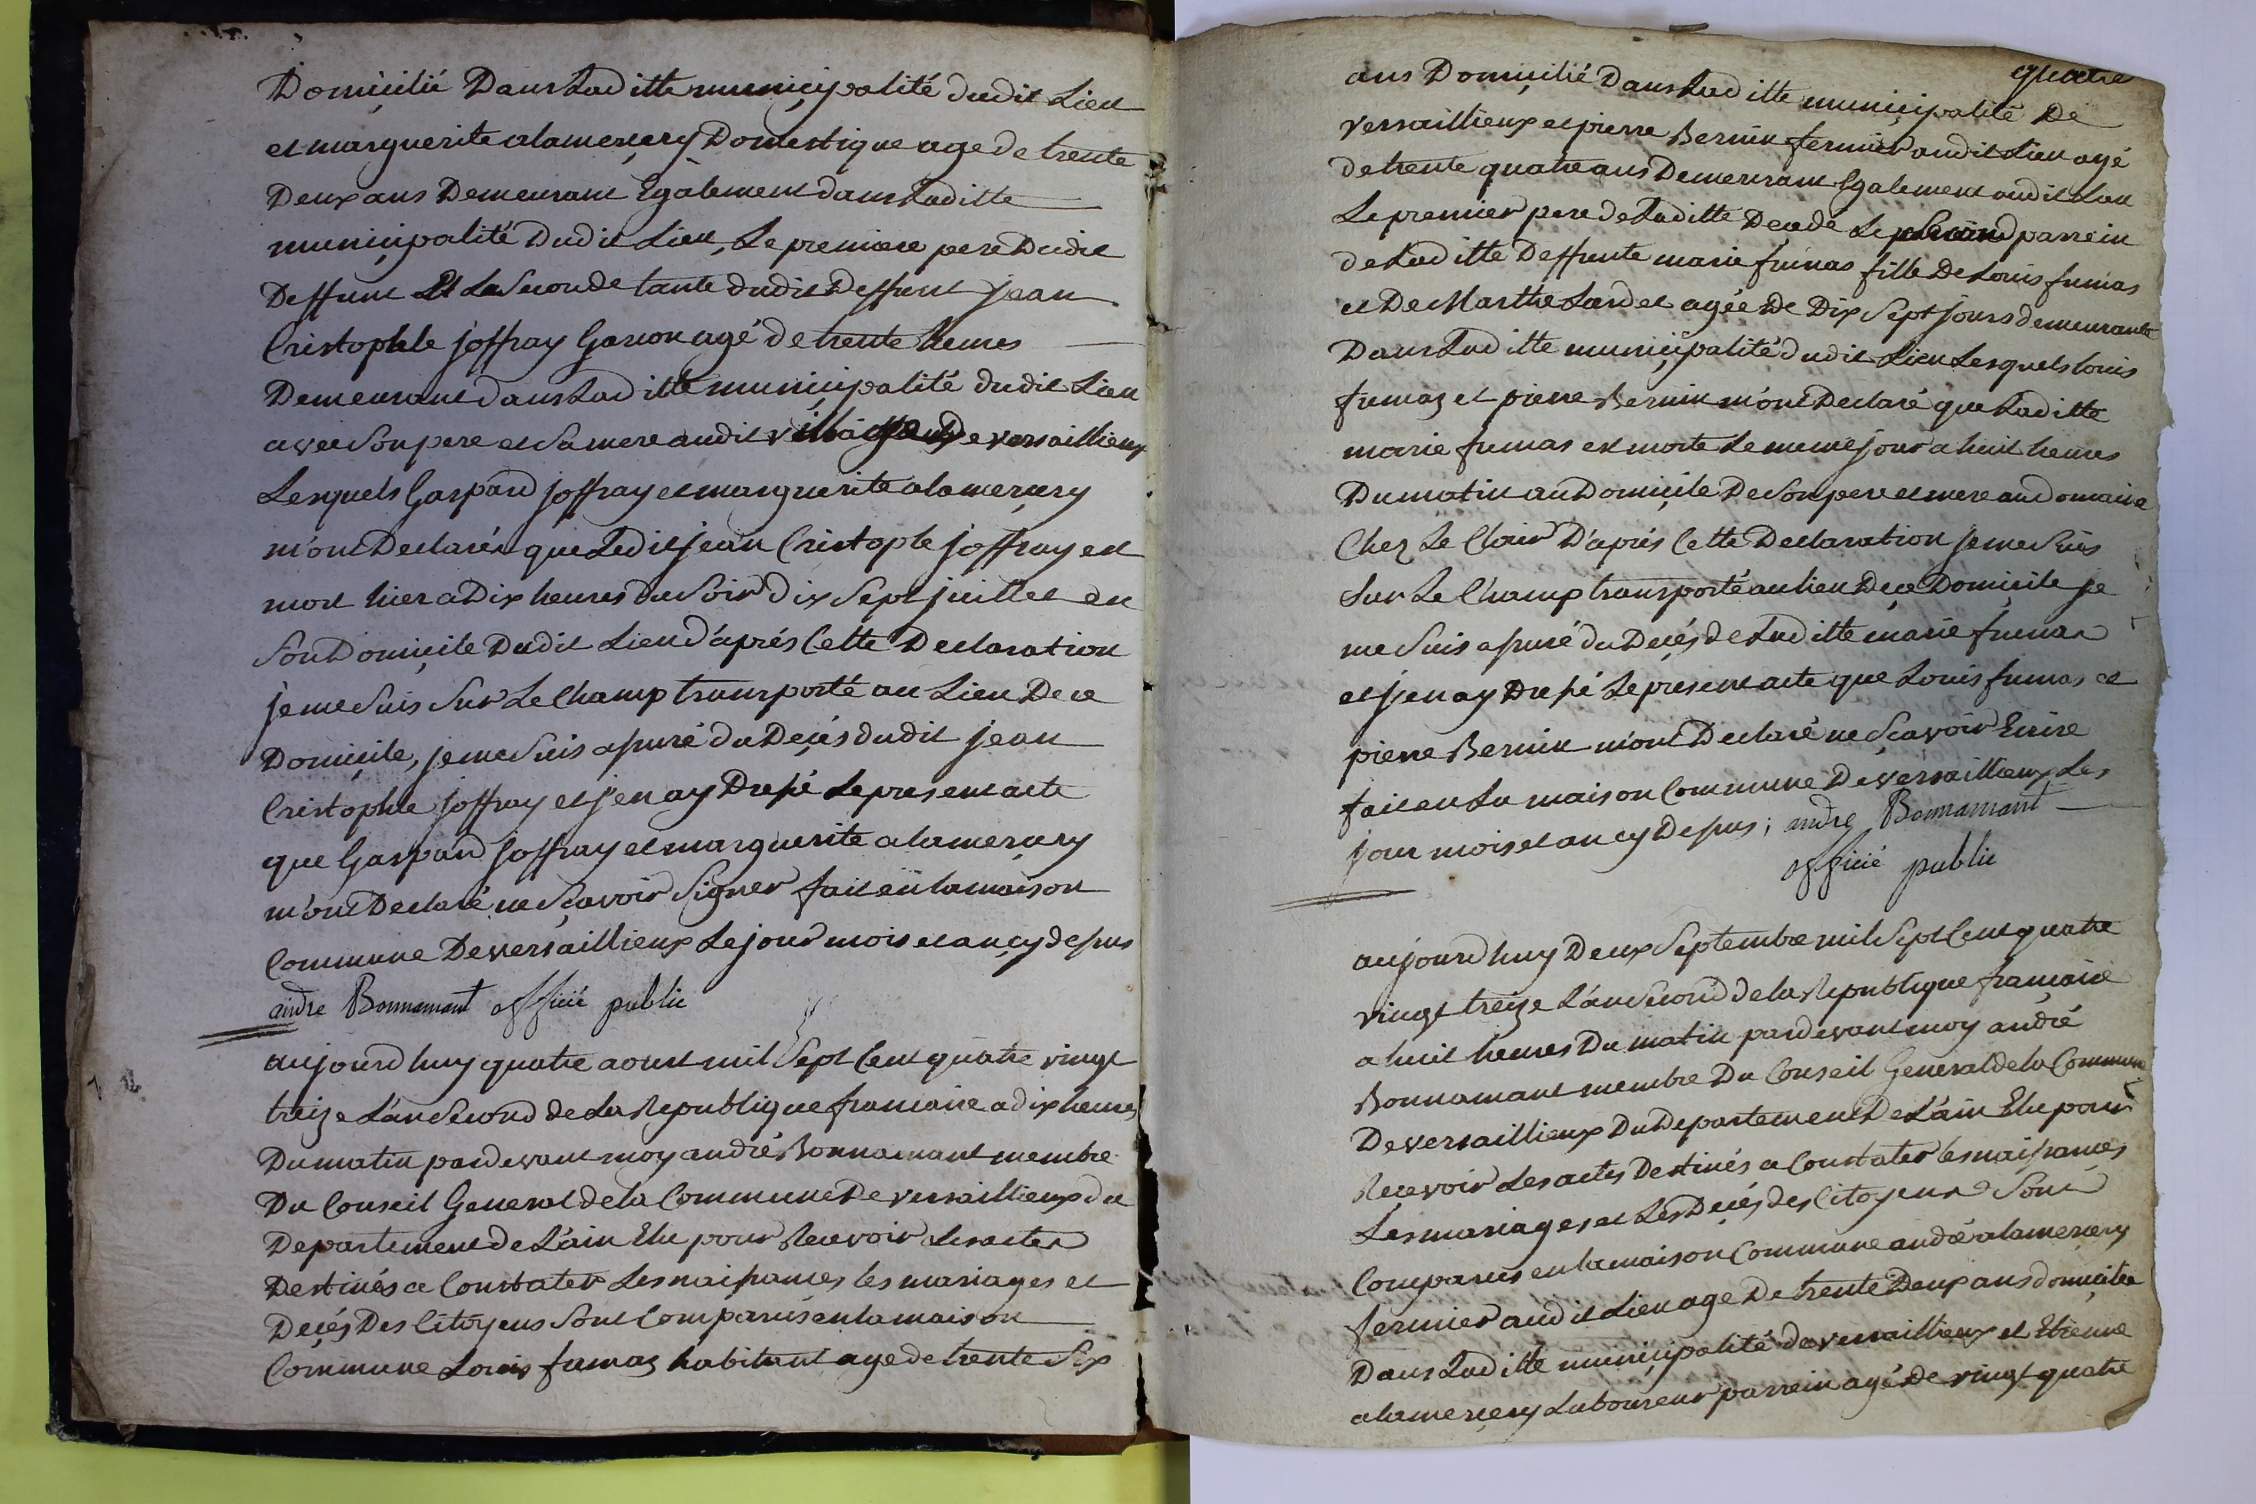 Domicilié Dans Lad itte municipalité dudit Lieu
et marguerite alamercery Domestique age de trente
Deux ans Demeurant Egalement dans Laditte
municipalité Dudit Lieu, Le premiere pere Dudit
Deffunt Et La Seconde tante dudit Deffunt jean
Cristophle joffray Garcon agé de trente heures
Demeurant dans Lad itte municipalité dudit Lieu
avec Son pere et Sa mere audit village de versaillieux
Lesquels Gaspard joffray et marguerite alamercery
m'ont Declarés que Ledit jean Cristople joffray est
mort hier a Dix heures du Soir dix Sept juillet en
Son Domicile Dudit Lieu d'après Cette Declaration
je me Suis Sur Le Champ transporté au Lieu De ce
Domicile, je me Suis assuré du Decés dudit jean
Cristophle joffray et j'en ay Dressé Le present acte
que Gaspard joffray et marguerite alamercery
m'ont Declaré ne Sçavoir Signer fait en la maison
Commune De versaillieux Le jour mois et an cy dessus
andre Bonnamant officié public
aujourd huy quatre aoust mil Sept Cent quatre vingt
treize L'an Second de La Republique francaise a dix heures
Du matin pardevant moy andré Bonnamant membre
Du Conseil General de la Commune De versaillieux du
Departement de L'ain Elu pour Recevoir Les actes
Destinés a Constater Les naissances les mariages et
Decés Des Citoyens Sont Comparus en la maison
Commune Louis fumaz habitant age de trente Six
quatre
ans Domicilié Dans Lad itte municipalité De
versaillieux et pierre Bernin fermier audit Lieu agé
de trente quatre ans Demeurant Egalement audit Lieu
Le premier pere de Laditte Decedé Le Second parrein
de Lad itte Deffunte marie fumas fille De Louis fumas
et De Marthe Lardet agée De Dix Sept jours demeurante
Dans Lad itte municipalité dudit Lieu Lesquels louis
fumaz et pierre Bernin m'ont Declaré que Lad itte
marie fumas est morte Le meme jour a huit heures
Du matin au Domicile De Son pere et mere au domaine
Chez Le Clair D'aprés Cette Declaration je me Suis
Sur Le Champ transporté au lieu De ce Domicile je
me Suis assuré du Decés de Lad itte marie fumas
et j'en ay Dressé Le present acte que Louis fumas et
pierre Bernin m'ont Declaré ne Sçavoir Ecrire
fait en La maison Commune De versaillieux Les
jour mois et an cy Dessus; andre Bonnamant
officié public
aujourd huy Deux Septembre mil Sept Cent quatre
vingt treize L'an Second de la Republique francaise
a huit heures Du matin pardevant moy andré
Bonnamant membre Du Conseil General de la Commune
De versaillieux Du Departement De L'ain Elu pour
Recevoir Les actes Destinés a Constater les naissances
Les mariages et Les Decés des Citoyens Sont
Comparus en la maison Commune andré alamercery
fermier audit Lieu age De trente Deux ans domicilie
Dans Lad itte municipalité de versaillieux et Etienne
alamercery Laboureur parrein agé de vingt quatre